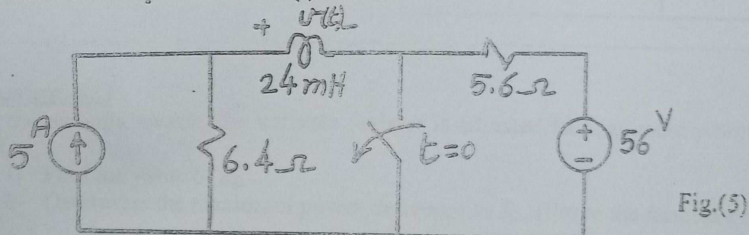 + v(t)
24mH
5.6Ω
5A
6.4Ω
t=0
+
56V
-
Fig.(5)